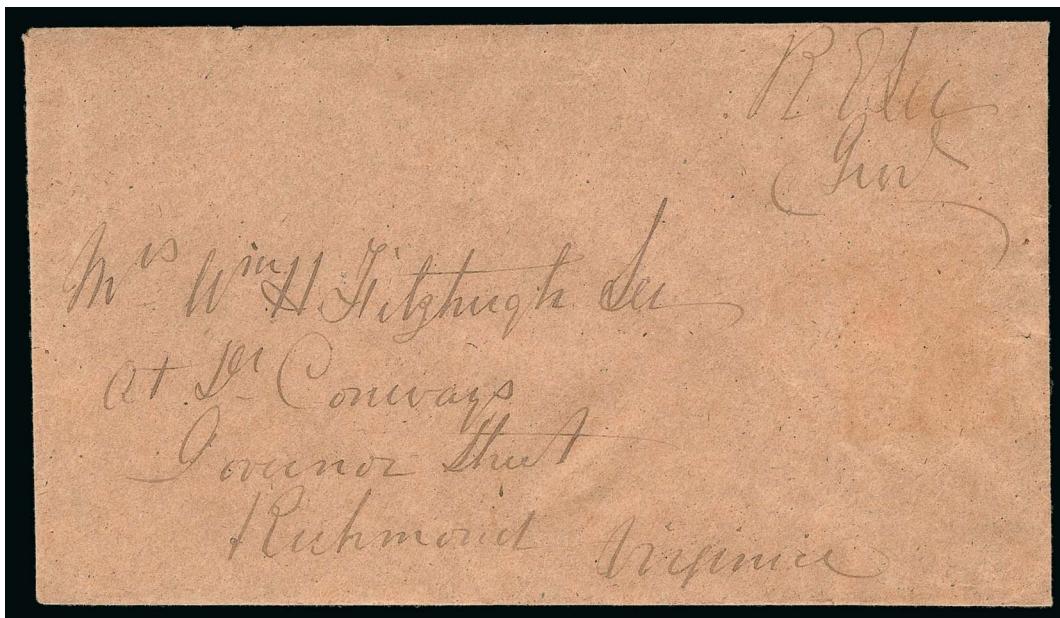 R E Lee
Genl
Mrs Wm H Fitzhugh Lee
at Dr Conways
Governor Street
Richmond Virginia